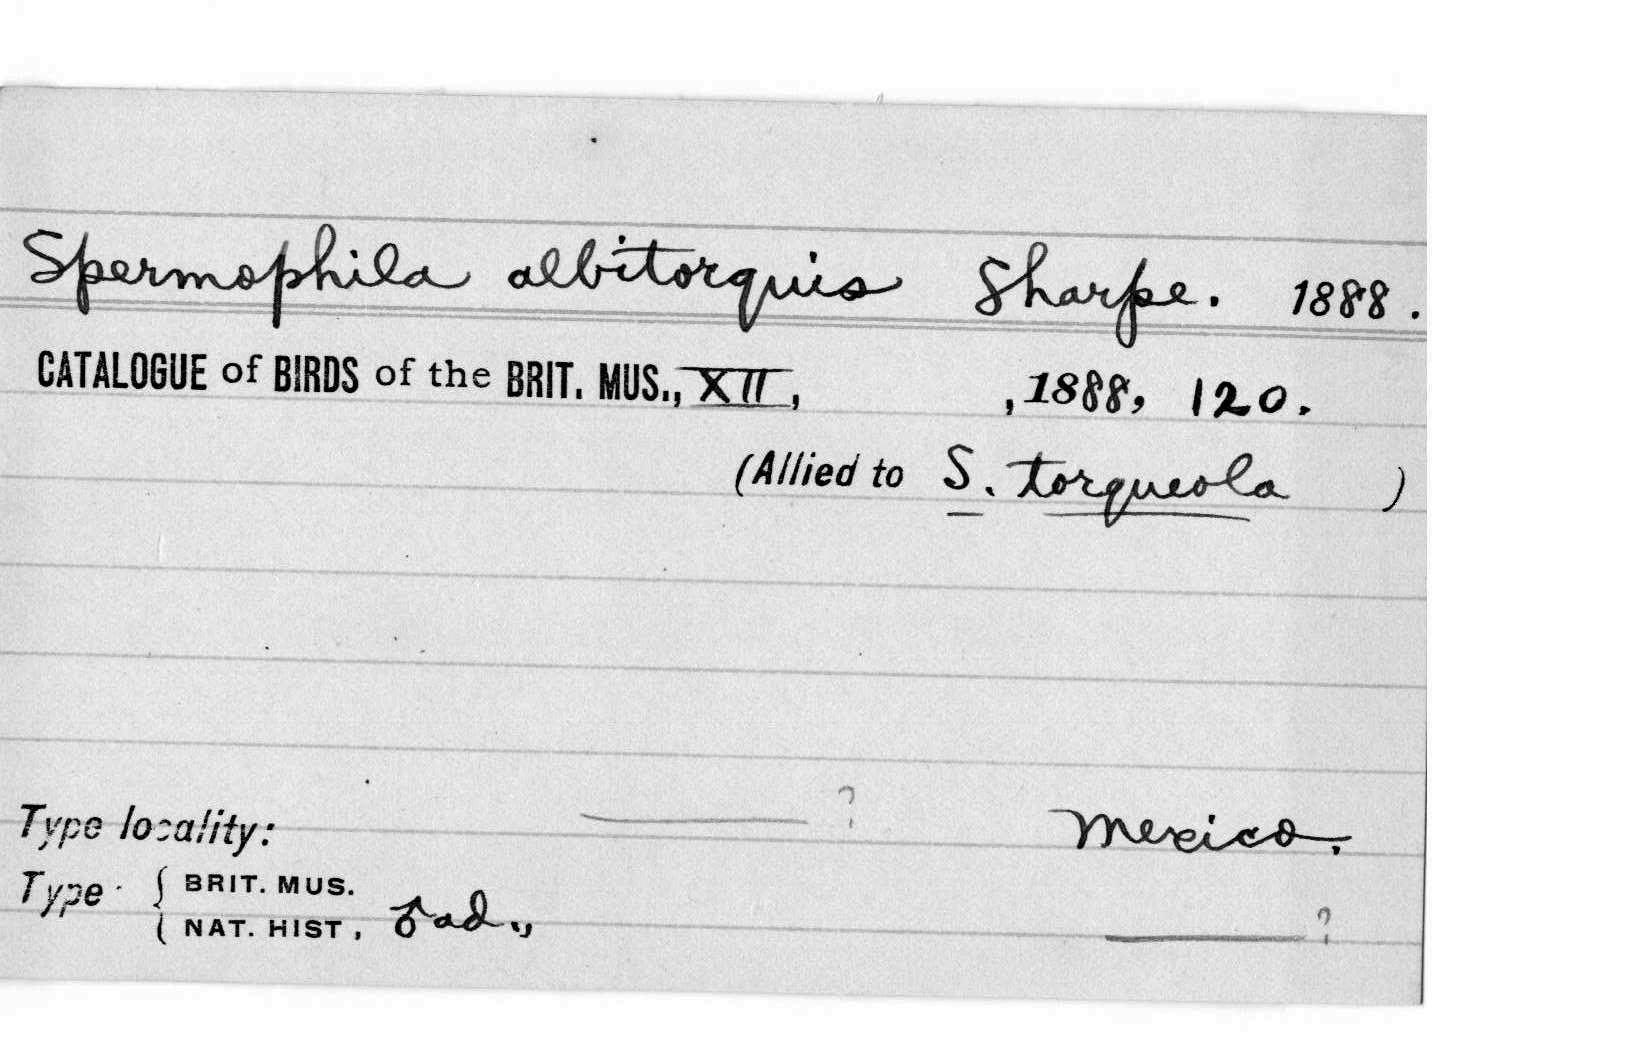 Spermophila albitorquis Sharpe. 1888.
CATALOGUE of BIRDS of the BRIT. MUS., XII, , 1888, 120.
(Allied to S. torqueola )
Type locality: ——— ? Mexico.
Type { BRIT. MUS.
NAT. HIST, ♂ ad., ——— ?